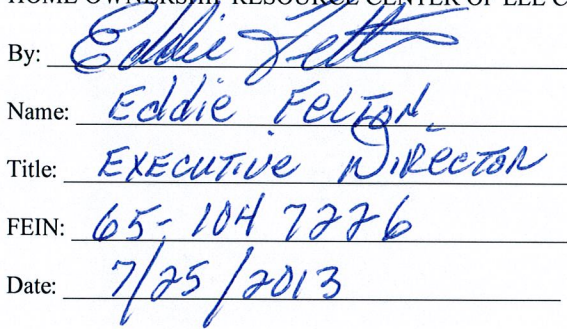 HOME OWNERSHIP RESOURCE CENTER OF LEE C
By: Eddie Felt
Name: Eddie Felton
Title: Executive Director
FEIN: 65-1047226
Date: 7/25/2013